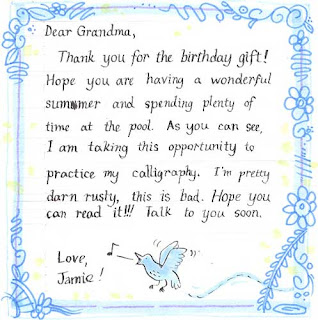 Dear Grandma,
Thank you for the birthday gift!
Hope you are having a wonderful
summer and spending plenty of
time at the pool. As you can see,
I am taking this opportunity to
practice my calligraphy. I'm pretty
darn rusty, this is bad. Hope you
can read it!!! Talk to you soon.
Love,
Jamie!